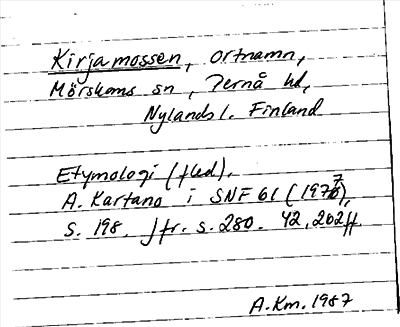 Kirjamossen, ortnamn,
Mörskoms sn, Pernå hd,
Nylands l. Finland
Etymologi (fled).
A. Kartano i SNF 61 (1977),
s. 198. Jfr. s. 280. 42, 202ff
A.Km. 1987